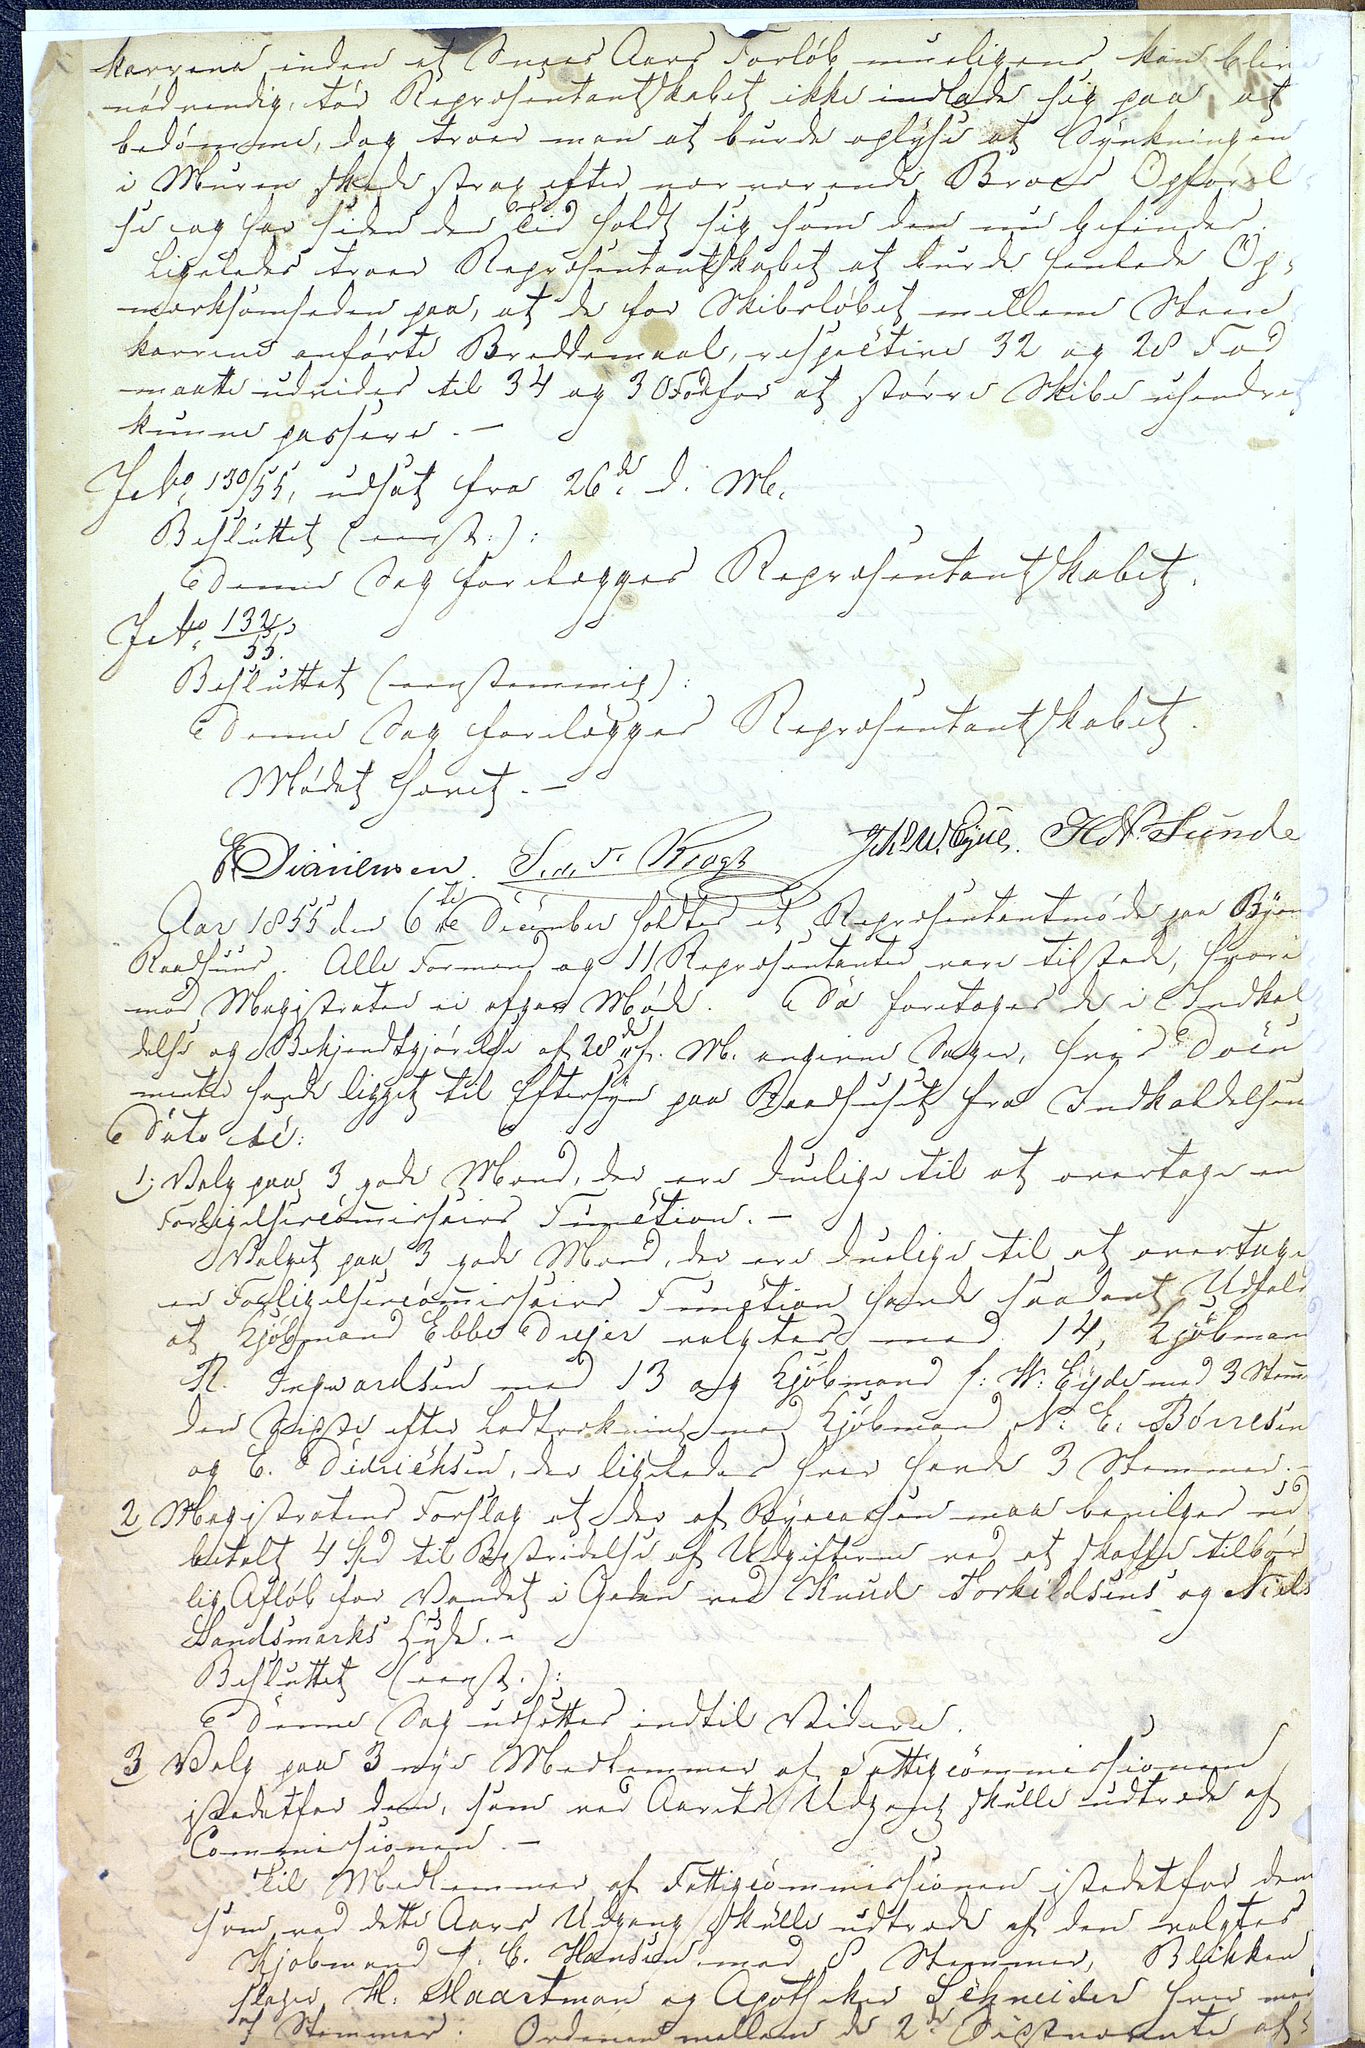 karrene inden et Snees Aars Forløb mueligens kan blive
nødvendig, tør Repræsentantskabet ikke indlade sig paa at
bedømme, dog troer man at burde oplyse at Synkningen
i Muren skede strax efter nærværende Broes Opførel
se og har siden den Tid holdt sig som den nu befindes.
Ligeledes troer Repræsentantskabet at burde henlede Op-
mærksomheden paa, at de for Skibsløbet mellem Steen
karrene anførte Breddemaal, respective 32 og 28 Fod
maatte udvides til 34 og 30 Fod for at større Skibe uhindret
kunne passere. —
J. No 130/55, udsat fra 26de d. M.
Besluttet (eenst.):
Denne Sag forelægges Repræsentantskabet.
J. No 132/55.
Besluttet (eenstemmig):
Denne Sag forelægges Repræsentantskabet.
Mødet hævet. —
Krogh Sunde
Aar 1855 den 6te December holdtes et Repræsentantmøde paa Byens
Raadhuus. Alle Formænd og 11 Repræsentanter vare tilstede, hvori
mod Magistraten ei afgav Møde. Da foretoges de i Indkal
delse og Bekjendtgjørelse af 28de f. M. angivne Sager, hvis Docu
menter havde ligget til Eftersyn paa Raadhuset fra Indkaldelsens
Dato
1, Valg paa 3 gode Mænd, der ere duelige til at overtage en
Forligelsescommissairs Function. —
Valget paa 3 gode Mænd, der ere duelige til at overtage
en Forligelsescommissairs Function havde saadant Udfald
at Kjøbmand Ebbe Drejer valgtes med 14, Kjøbmand
R. Ingwardsen med 13 og Kjøbmand J. W. Eyde med 3 Stemmer
den sidste efter Lodtrækning med Kjøbmand N. E. Børresen
og E. Didrichsen, der ligeledes hver havde 3 Stemmer. —
2, Magistratens Forslag at der af Byecassen maa bevilges ud
betalt 4 Spd til Bestridelse af Udgifterne ved at skaffe tilbør
lig Afløb for Vandet i Gaden ved Knud Torkildsens og Niels
Landsmarks Huse. —
Besluttet (eenst.):
Denne Sag udsættes indtil Videre.
3, Valg paa 3 nye Medlemmer af Fattigcommissionen
istedetfor dem, som ved Aarets Udgang skulle udtræde af
Commissionen. —
Til Medlemmer af Fattigcommissionen istedetfor dem
som ved dette Aars Udgang skulle udtræde af den valgtes
Kjøbmand J. C. Hansen med 8 Stemmer, Blikken
slager H. Maartman og Apotheker Schneider hver med
7 Stemmer. Ordenen mellem de 2de Sidstnævnte af-